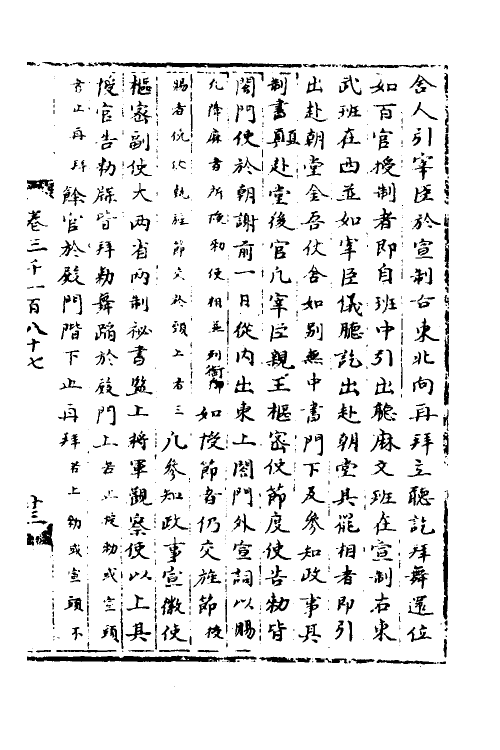 舍人引宰臣於宣制台東北向再拜立聽訖拜舞還位
如百官授制者即自班中引出聽麻文班在宣制右東
武班在西並如宰臣儀聽訖出赴朝堂其罷相者即引
出赴朝堂金吾仗舍如別無中書門下及參知政事其
制書顛赴堂後官凡宰臣親王樞密使節度使告勅皆
閤門使於朝謝前一日從內出東上閤門外宣詞以賜
凡降麻官所授勅使相並列銜 如授節者仍交旌節 後
賜者仍以執旌節交於頭上者三 凡參知政事宣徽使
樞密副使大兩省兩制祕書監上將軍觀察使以上其
授官告勅牒皆拜勅舞蹈於殿門上 若止授勅或宣頭
者止再拜 餘官於殿門階下止再拜 若上勅或宣頭不
卷三千一百八十七
十三